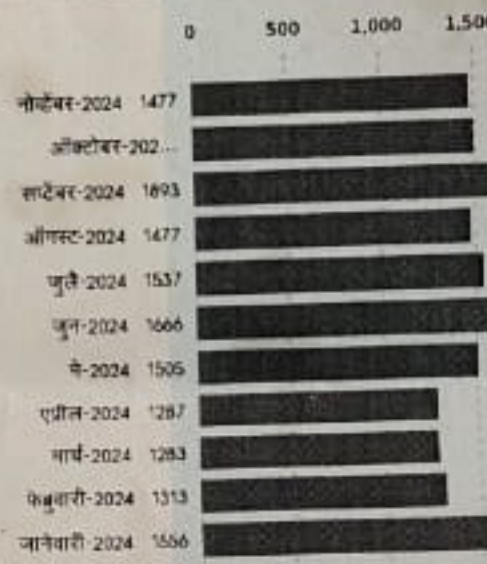 0 500 1,000 1,500
नोव्हेंबर-2024 1477
ऑक्टोबर-202...
सप्टेंबर-2024 1693
ऑगस्ट-2024 1477
जुलै-2024 1537
जुन-2024 1666
मे-2024 1505
एप्रील-2024 1287
मार्च-2024 1283
फेब्रुवारी-2024 1313
जानेवारी-2024